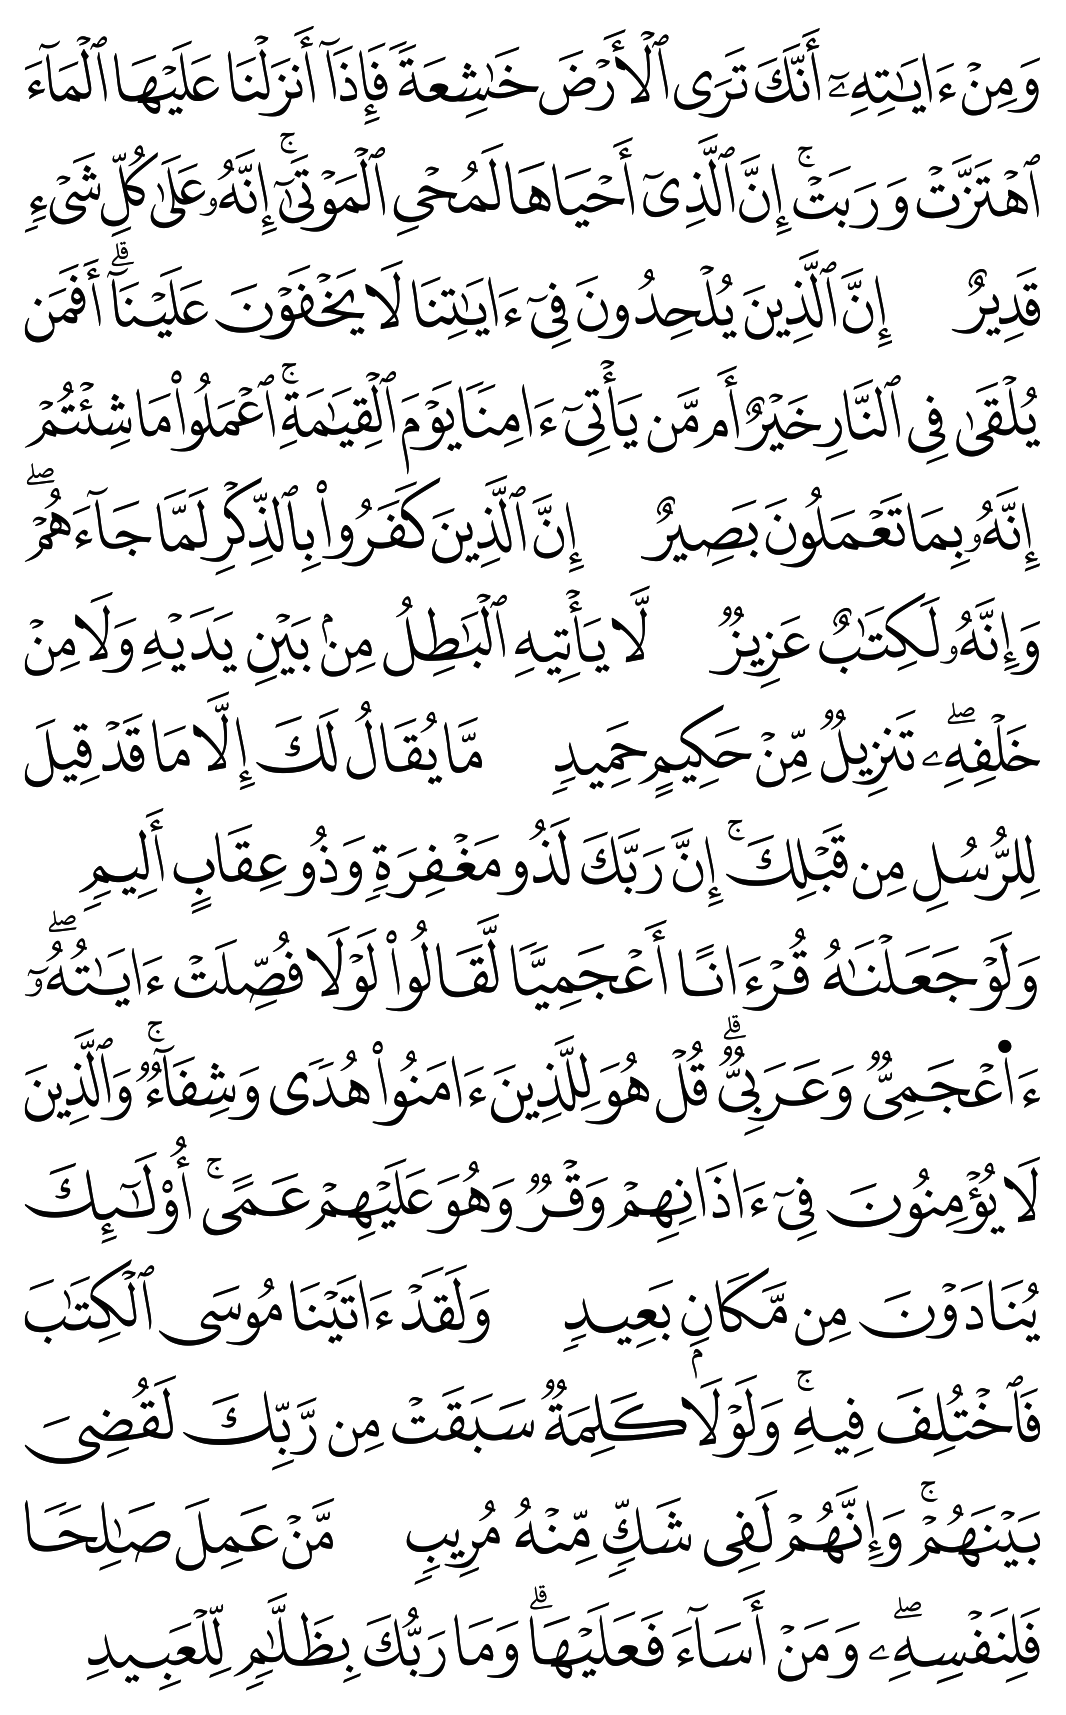 وَمِنْ ءَايَٰتِهِۦٓ أَنَّكَ تَرَى ٱلْأَرْضَ خَٰشِعَةً فَإِذَآ أَنزَلْنَا عَلَيْهَا ٱلْمَآءَ
ٱهْتَزَّتْ وَرَبَتْ ۚ إِنَّ ٱلَّذِىٓ أَحْيَاهَا لَمُحْىِ ٱلْمَوْتَىٰٓ ۚ إِنَّهُۥ عَلَىٰ كُلِّ شَىْءٍ
قَدِيرٌ إِنَّ ٱلَّذِينَ يُلْحِدُونَ فِىٓ ءَايَٰتِنَا لَا يَخْفَوْنَ عَلَيْنَآ ۗ أَفَمَن
يُلْقَىٰ فِى ٱلنَّارِ خَيْرٌ أَم مَّن يَأْتِىٓ ءَامِنًا يَوْمَ ٱلْقِيَٰمَةِ ۚ ٱعْمَلُوا۟ مَا شِئْتُمْ ۖ
إِنَّهُۥ بِمَا تَعْمَلُونَ بَصِيرٌ إِنَّ ٱلَّذِينَ كَفَرُوا۟ بِٱلذِّكْرِ لَمَّا جَآءَهُمْ ۖ
وَإِنَّهُۥ لَكِتَٰبٌ عَزِيزٌ لَّا يَأْتِيهِ ٱلْبَٰطِلُ مِنۢ بَيْنِ يَدَيْهِ وَلَا مِنْ
خَلْفِهِۦ ۖ تَنزِيلٌ مِّنْ حَكِيمٍ حَمِيدٍ مَّا يُقَالُ لَكَ إِلَّا مَا قَدْ قِيلَ
لِلرُّسُلِ مِن قَبْلِكَ ۚ إِنَّ رَبَّكَ لَذُو مَغْفِرَةٍ وَذُو عِقَابٍ أَلِيمٍ
وَلَوْ جَعَلْنَٰهُ قُرْءَانًا أَعْجَمِيًّا لَّقَالُوا۟ لَوْلَا فُصِّلَتْ ءَايَٰتُهُۥٓ ۖ
ءَا۬عْجَمِىٌّ وَعَرَبِىٌّ ۗ قُلْ هُوَ لِلَّذِينَ ءَامَنُوا۟ هُدًى وَشِفَآءٌ ۚ وَٱلَّذِينَ
لَا يُؤْمِنُونَ فِىٓ ءَاذَانِهِمْ وَقْرٌ وَهُوَ عَلَيْهِمْ عَمًى ۚ أُو۟لَٰٓئِكَ
يُنَادَوْنَ مِن مَّكَانٍ بَعِيدٍ وَلَقَدْ ءَاتَيْنَا مُوسَى ٱلْكِتَٰبَ
فَٱخْتُلِفَ فِيهِ ۚ وَلَوْلَا كَلِمَةٌ سَبَقَتْ مِن رَّبِّكَ لَقُضِىَ
بَيْنَهُمْ ۚ وَإِنَّهُمْ لَفِى شَكٍّ مِّنْهُ مُرِيبٍ مَّنْ عَمِلَ صَٰلِحًا
فَلِنَفْسِهِۦ ۖ وَمَنْ أَسَآءَ فَعَلَيْهَا ۗ وَمَا رَبُّكَ بِظَلَّٰمٍ لِّلْعَبِيدِ